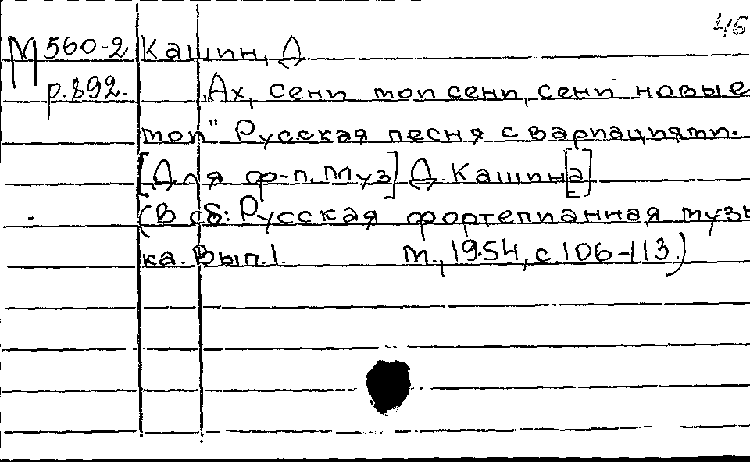 46
М 560-2 Кашин, Д
р.892. Ах, сени мои сени, сени новые
мои" Русская песня с вариациями.
[Для ф-п. Муз] Д. Кашин[а]
(В сб: Русская фортепианная музы
ка. Вып.1 М., 1954, с.106-113)